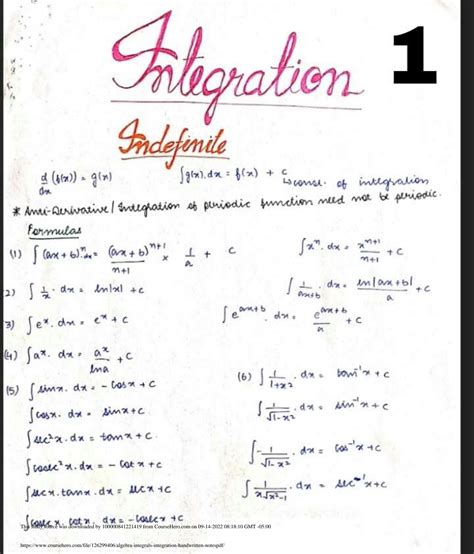 Integration 1
Indefinite
d/dx (f(x)) = g(x)    ∫g(x).dx = f(x) + c ↳ const. of integration
* Anti-Derivative / Integration of periodic function need not be periodic.
Formulas
(1) ∫(ax+b)ⁿ.dx = (ax+b)ⁿ⁺¹/n+1 × 1/a + c    ∫xⁿ.dx = xⁿ⁺¹/n+1 + c
2) ∫1/x.dx = ln|x| + c    ∫1/ax+b.dx = ln|ax+b|/a + c
3) ∫eˣ.dx = eˣ + c    ∫eᵃˣ⁺ᵇ.dx = eᵃˣ⁺ᵇ/a + c
(4) ∫aˣ.dx = aˣ/lna + c
(5) ∫sinx.dx = - cosx + c    (6) ∫1/1+x².dx = tan⁻¹x + c
∫cosx.dx = sinx + c    ∫1/√1-x².dx = sin⁻¹x + c
∫sec²x.dx = tanx + c    ∫-1/√1-x².dx = cos⁻¹x + c
∫cosec²x.dx = - cotx + c    ∫1/x√x²-1.dx = sec⁻¹x + c
∫secx.tanx.dx = secx + c
∫cosecx.cotx.dx = - cosecx + c
This study source was downloaded by 100000841221419 from CourseHero.com on 09-14-2022 08:18:10 GMT -05:00
https://www.coursehero.com/file/126299406/algebra-integrals-integration-handwritten-notespdf/